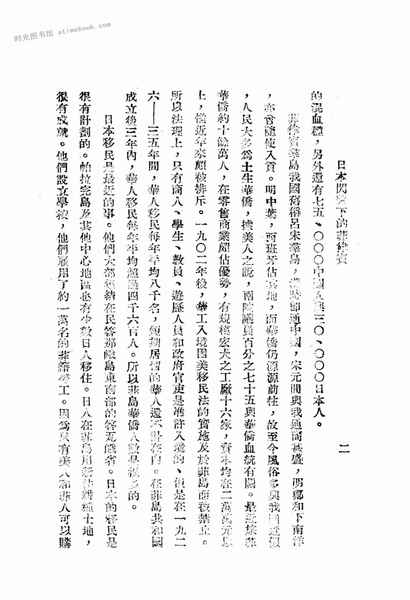 时光图书馆 altmebook.com
日本閃下的菲律賓
二
的混血種，另外還有七五、〇〇〇中國人與三〇、〇〇〇日本人。
菲律賓羣島我國舊稱呂宋羣島，漢時即通中國，宋元間與我通商甚盛，明鄭和下南洋
，亦曾隨使入貢。明中葉，西班牙佔其地，而華僑仍源源前往，故至今風俗多與我國近似
，人民大多爲土生華僑，據美人之說，兩院議員百分之七十五與華僑血統有關。最近旅菲
華僑約十餘萬人，在零售商業頗佔優勢，有規模宏大之工廠十六家，資本均在二萬萬元以
上，惟近年來頗被排斥。一九〇二年後，華工入境因美移民法的實施及於菲島而被禁止。
所以法理上，只有商人、學生、教員、遊歷人員和政府官吏是准許入境的、但是在一九二
六——三五年間，華人移民每年平均八千名，短期居留的華人還不計在內。在菲島共和國
成立後三年內，華人移民每年平均超過四千六百人。所以菲島華僑人數是很多的。
日本移民是最近的事。他們大部集結在民答那峨島東南部的答俄省。日本的移民是
很有計劃的。帕拉完島及其他中心地區也有少數日人移住。日人在菲島種土地，
很有成就。他們設立學校，他們雇用了約一萬名的菲籍勞工。因爲只有美人和菲人可以購